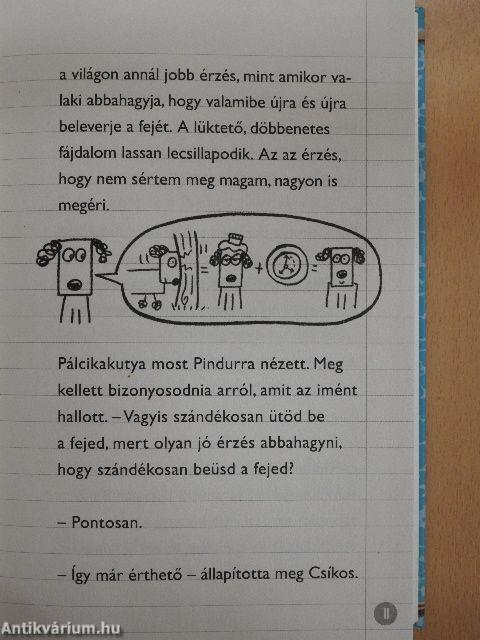 a világon annál jobb érzés, mint amikor va-
laki abbahagyja, hogy valamibe újra és újra
beleverje a fejét. A lüktető, döbbenetes
fájdalom lassan lecsillapodik. Az az érzés,
hogy nem sértem meg magam, nagyon is
megéri.
= + =
Pálcikakutya most Pindurra nézett. Meg
kellett bizonyosodnia arról, amit az imént
hallott. – Vagyis szándékosan ütöd be
a fejed, mert olyan jó érzés abbahagyni,
hogy szándékosan beüsd a fejed?
– Pontosan.
– Így már érthető – állapította meg Csíkos.
11
Antikvárium.hu